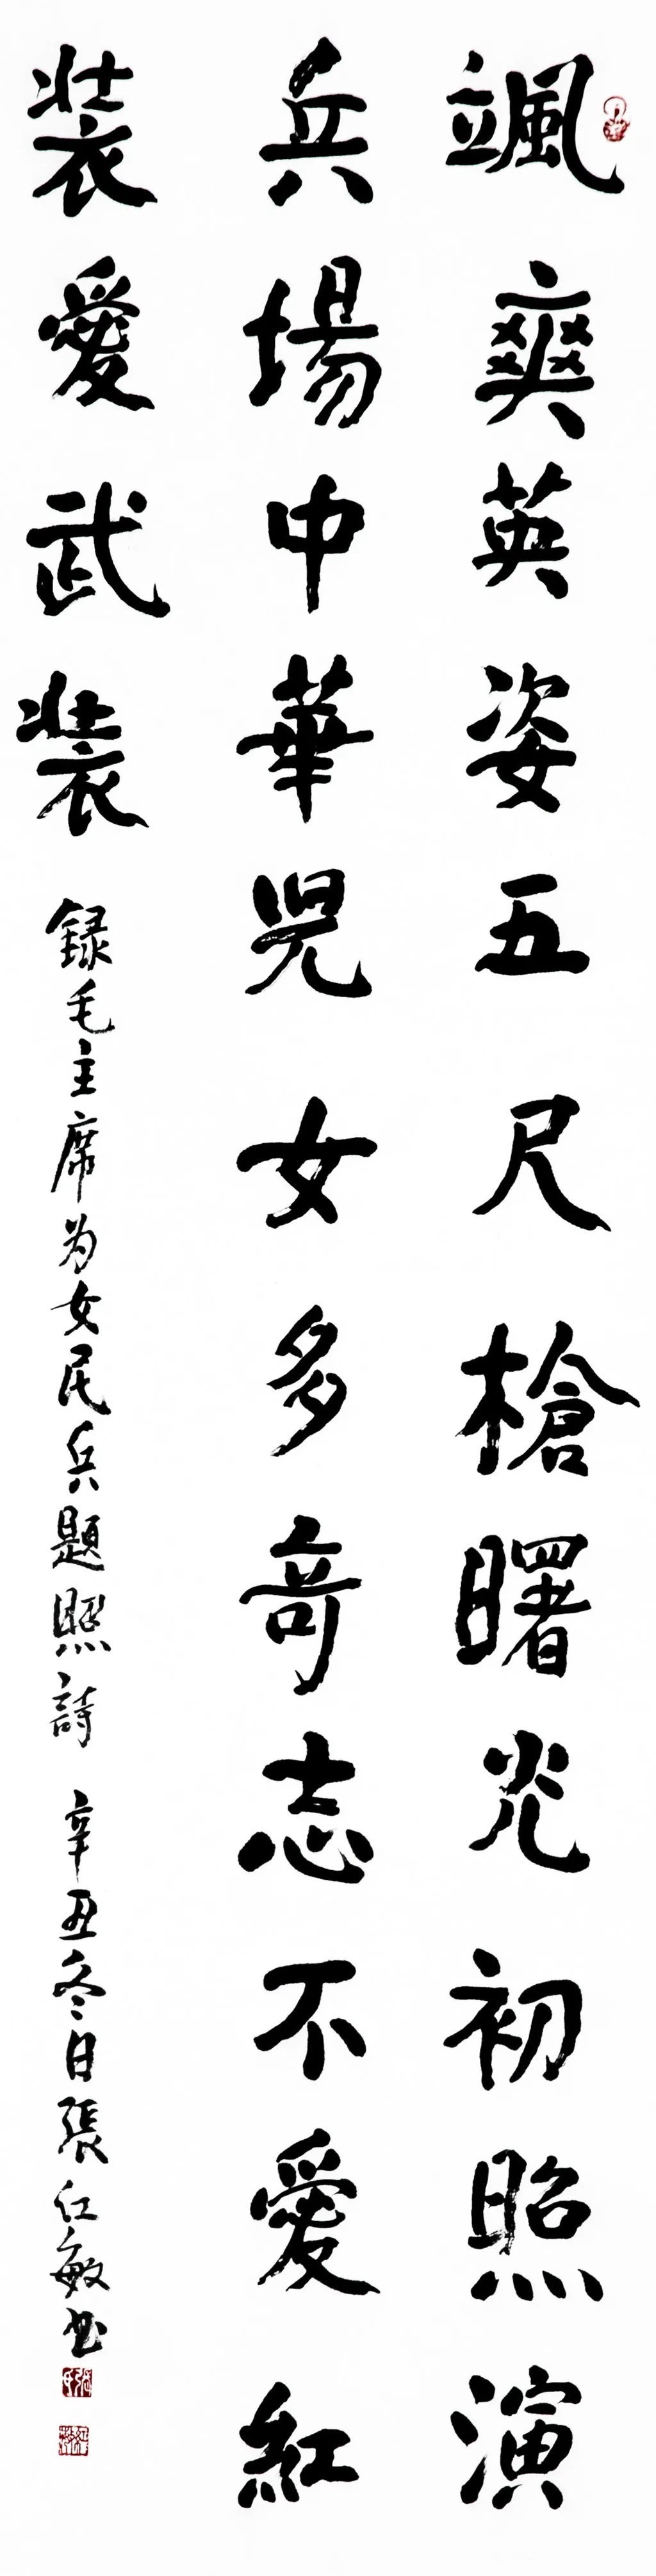 颯爽英姿五尺槍曙光初照演
兵場中華兒女多奇志不愛紅
装愛武装
録毛主席为女民兵題照詩 辛丑冬日張红敏书